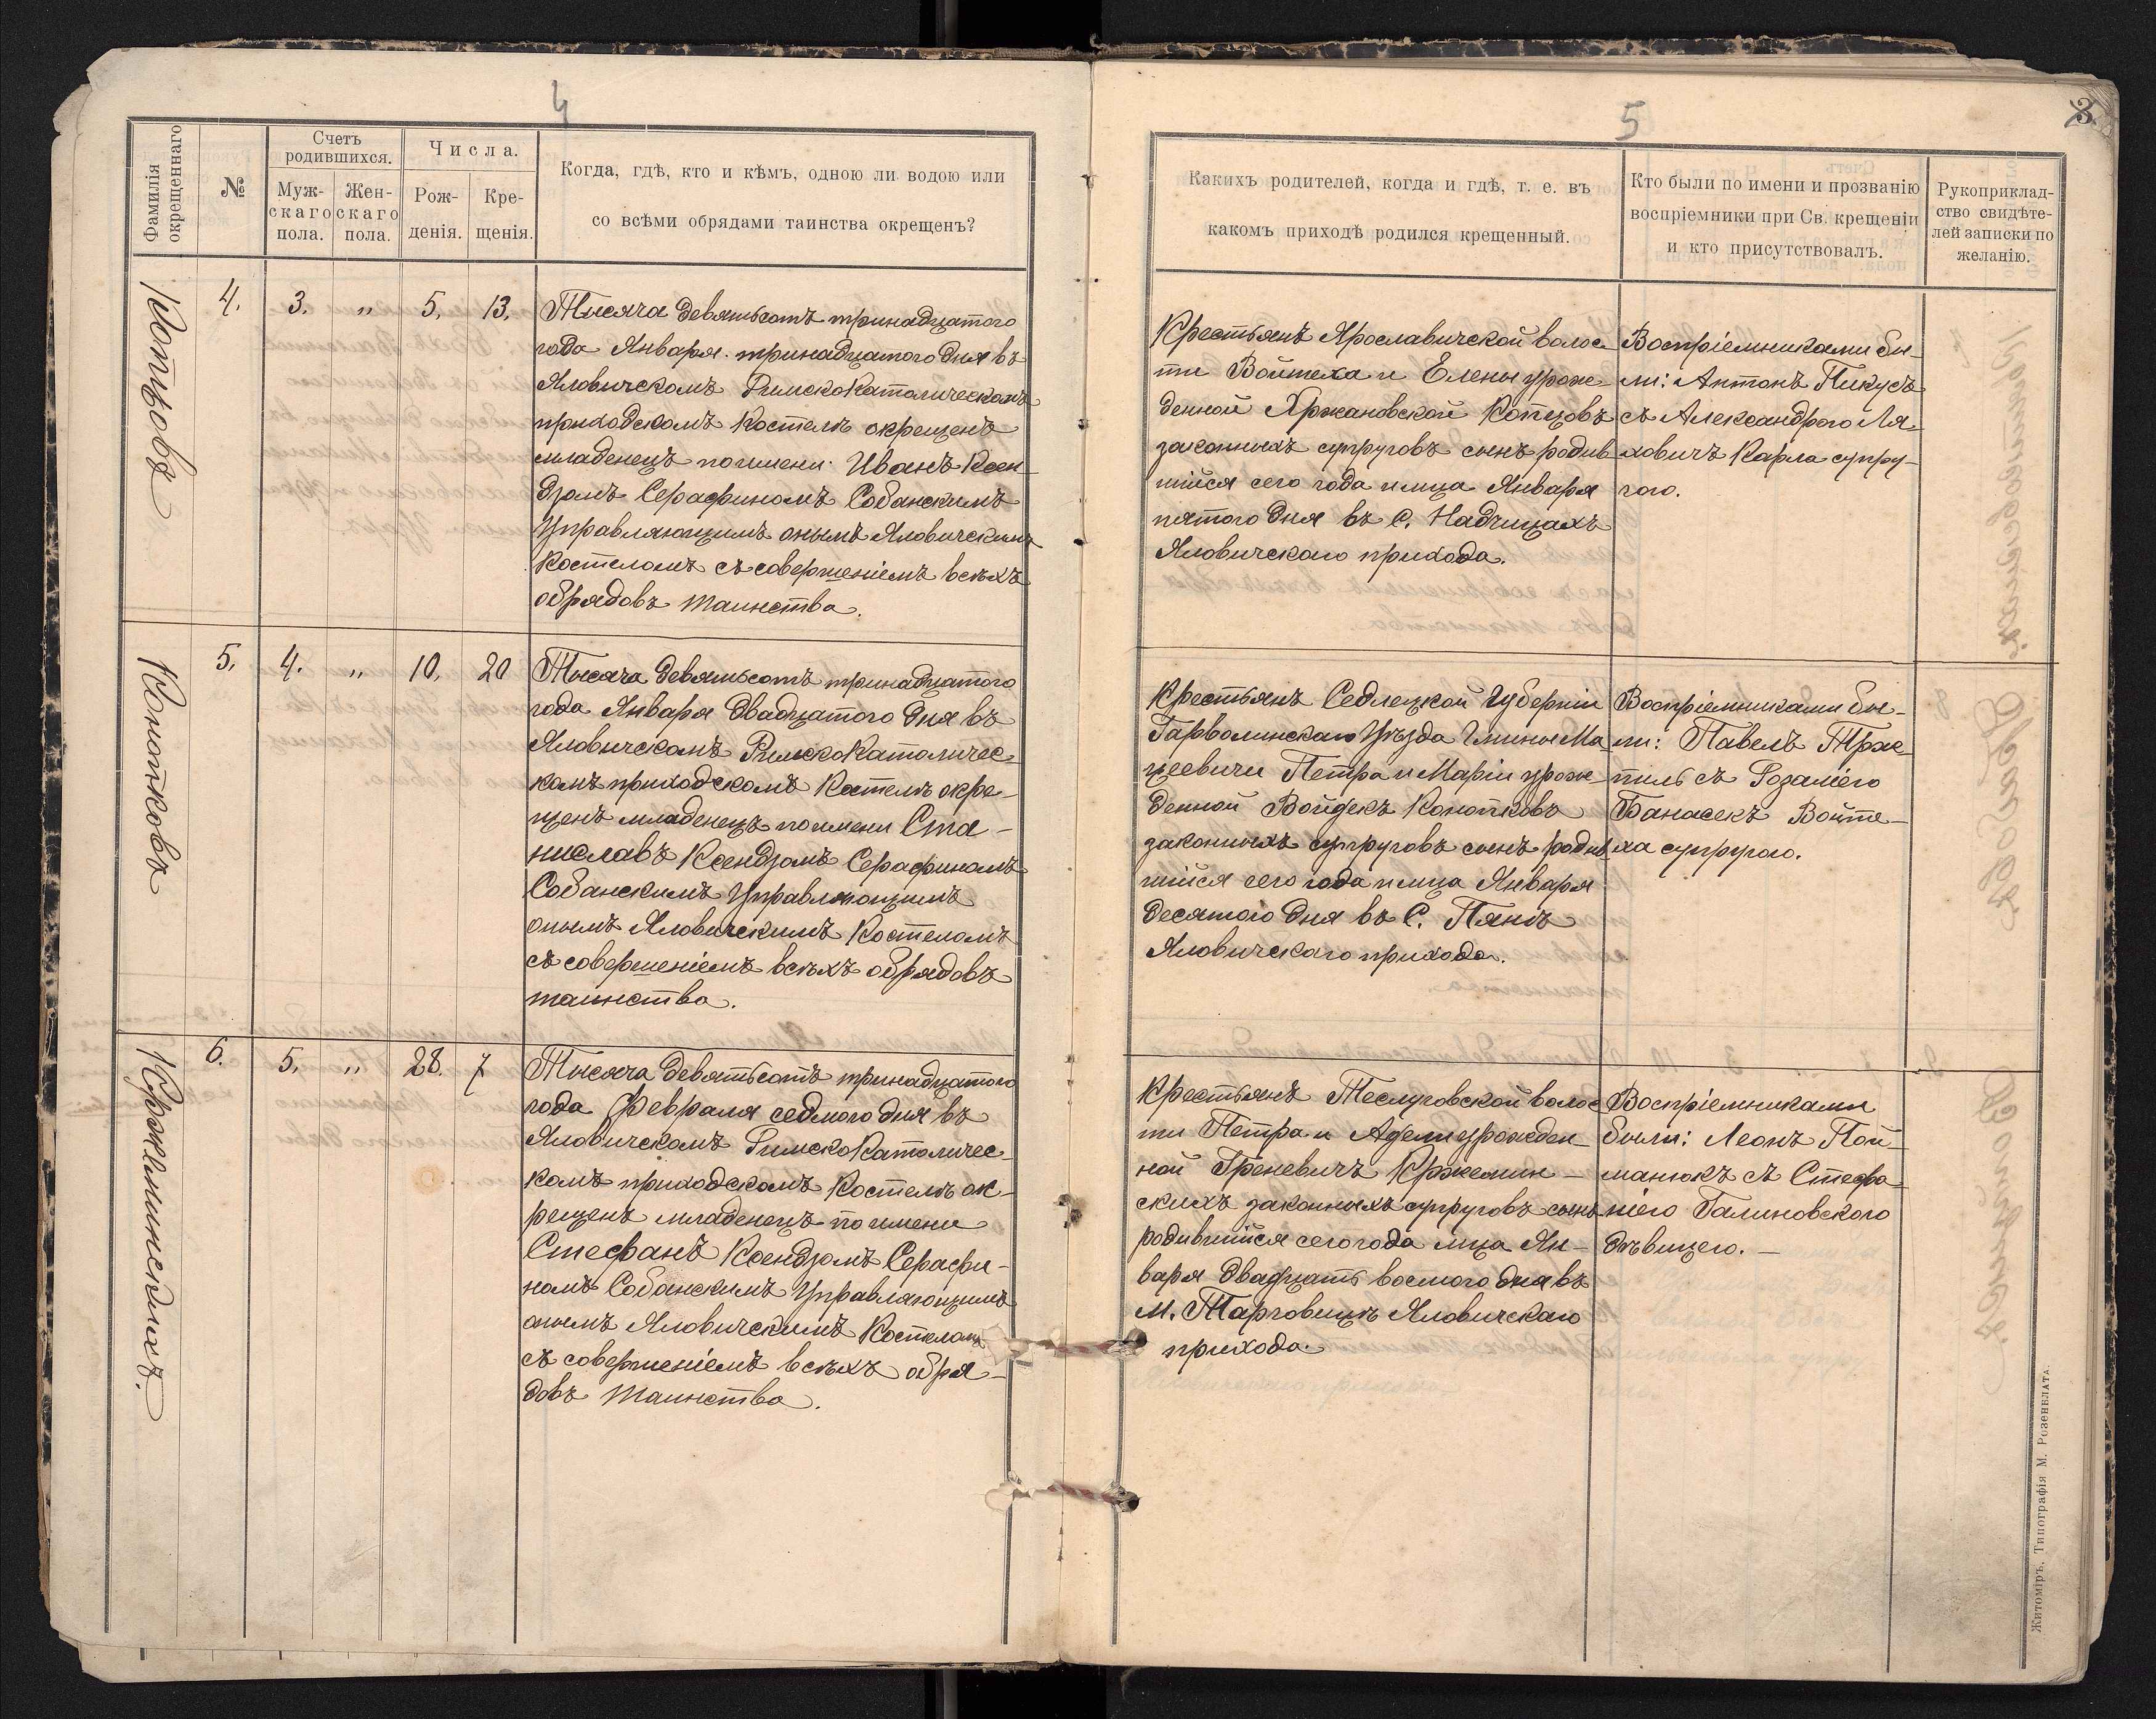 4
Фамилія
окрещеннаго
№
Счетъ
родившихся.
Муж-
скаго
пола.
Жен-
скаго
пола.
Числа.
Рож-
денія.
Кре-
щенія.
Когда, гдѣ, кто и кѣмъ, одною ли водою или
со всѣми обрядами таинства окрещенъ?
Копцовъ
4.
3.
"
5.
13.
Тысяча девятьсотъ тринадцатого
года Января тринадцатого дня въ
Яловичскомъ РимскоКатолическомъ
приходскомъ Костелѣ окрещенъ
младенецъ по имени Иванъ Ксен-
дзомъ Серафиномъ Собанскимъ
Управляющимъ онымъ Яловичскимъ
Костеломъ съ совершеніемъ всѣхъ
обрядовъ таинства.
Конопковъ
5.
4.
"
10.
20
Тысяча девятьсотъ тринадцатого
года Января двадцатого дня въ
Яловичскомъ РимскоКатоличес-
комъ приходскомъ Костелѣ окре-
щенъ младенецъ по имени Ста-
ниславъ Ксендзомъ Серафиномъ
Собанскимъ Управляющимъ
онымъ Яловичскимъ Костеломъ
съ совершеніемъ всѣхъ обрядовъ
таинства.
Кржеминскихъ.
6.
5.
"
28.
7
Тысяча девятьсотъ тринадцатого
года Февраля седмого дня въ
Яловичскомъ РимскоКатоличес-
комъ приходскомъ Костелѣ ок-
рещенъ младенецъ по имени
Стефанъ Ксендзомъ Серафи-
номъ Собанскимъ Управляющимъ
онымъ Яловичскимъ Костеломъ
съ совершеніемъ всѣхъ обря-
довъ таинства.
5
3.
Какихъ родителей, когда и гдѣ, т. е. въ
какомъ приходѣ родился крещенный.
Кто были по имени и прозванію
воспріемники при Св. крещеніи
и кто присутствовалъ.
Рукоприклад-
ство свидѣте-
лей записки по
желанію.
Крестьянъ Ярославичской волос-
ти Войтеха и Елены урож-
денной Хржановской Копцовъ
законныхъ супруговъ сынъ родив
шійся сего года м-ца Января
пятого дня въ С. Надчицахъ
Яловичскаго прихода.
Воспріемниками бы-
ли: Антонъ Пикусъ
съ Александрою Ля-
ховичъ Карла супру-
гою.
Крестьянъ Седлецкой Губерніи
Гарволинскаго Уѣзда Гмины Ма
цеевичи Петра и Маріи урож-
денной Войдекъ Конопковъ
законныхъ супруговъ сынъ родив
шійся сего года м-ца Января
десятого дня въ С. Пянѣ
Яловичскаго прихода.
Воспріемниками бы-
ли: Павелъ Трже-
пиль съ Розаліею
Банасекъ Войте-
ха супругою.
Крестьянъ Теслуговской волос
ти Петра и Адели урожден-
ной Греневичъ Кржемин-
скихъ законныхъ супруговъ сынъ
родившійся сего года м-ца Ян-
варя двадцать восмого дня въ
М. Тарговицѣ Яловичскаго
прихода.
Воспріемниками
были: Леонъ Пой-
манюкъ съ Стефа
ніею Галиновскою
дѣвицею.
Житоміръ, Типографія М. Розенблата